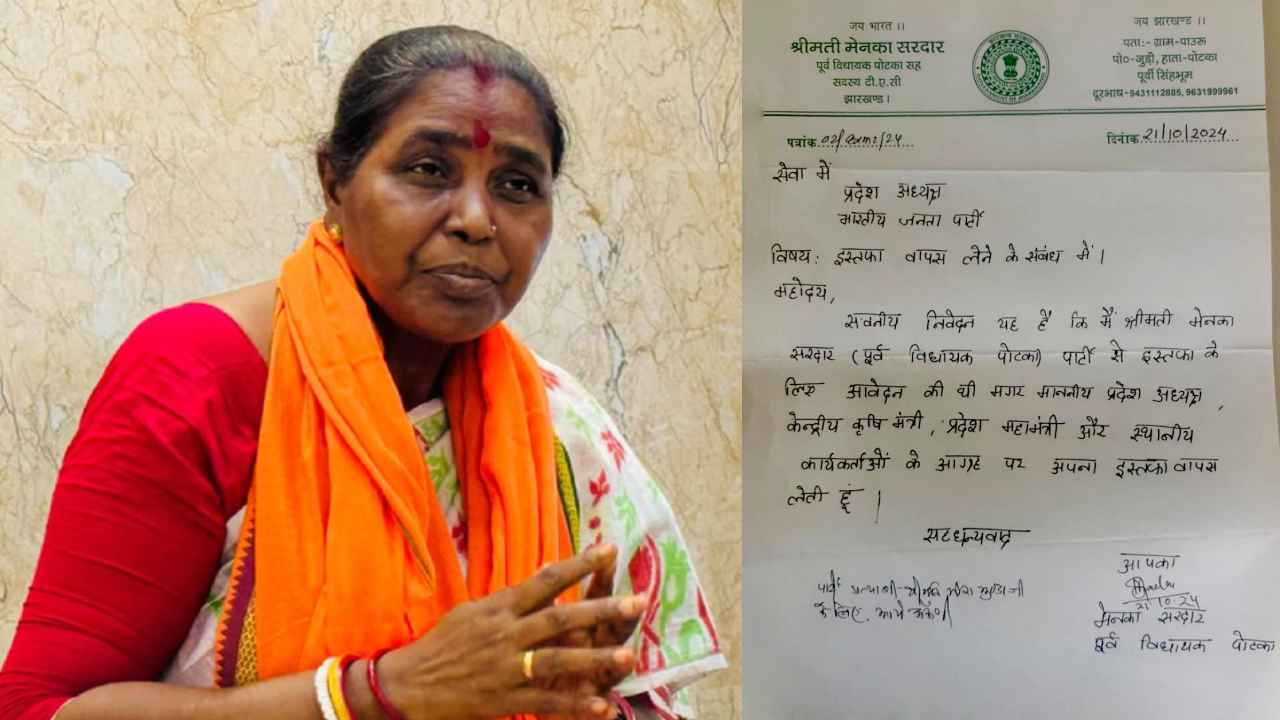 जय भारत ।।
श्रीमती मेनका सरदार
पूर्व विधायक पोटका सह
सदस्य टी.ए.सी
झारखण्ड।
जय झारखण्ड ।।
पताः- ग्राम-पाउरू
पो०-जुड़ी, हाता-पोटका
पूर्वी सिंहभूम
दूरभाष-9431112885, 9631999961
पत्रांक
दिनांक 21/10/2024
सेवा में
प्रदेश अध्यक्ष
भारतीय जनता पार्टी
विषय: इस्तफा वापस लेने के संबंध में।
महोदय,
सवनीय निवेदन यह है कि मैं श्रीमती मेनका
सरदार (पूर्व विधायक पोटका) पार्टी से इस्तफा के
लिए आवेदन की थी मगर माननीय प्रदेश अध्यक्ष,
केन्द्रीय कृषि मंत्री, प्रदेश महामंत्री और स्थानीय
कार्यकर्ताओं के आग्रह पर अपना इस्तफा वापस
लेती हूं।
सहधन्यवाद
आपका
21.10.24
मेनका सरदार
पूर्व विधायक पोटका
पार्टी प्रत्याशी श्रीमती मीरा मुंडा जी
के लिए